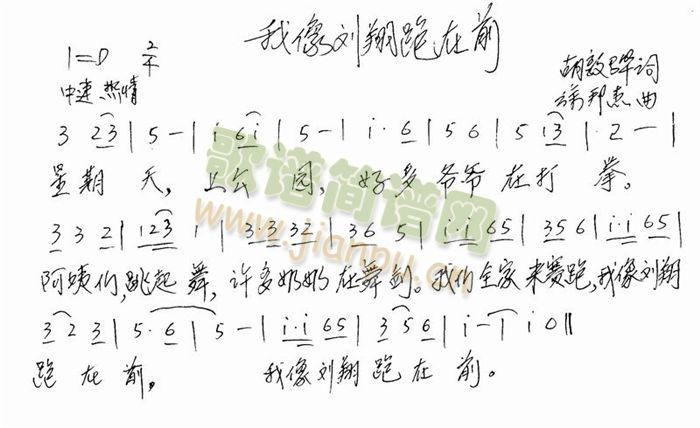 我像刘翔跑在前
1=D 2/4
中速 热情
胡敦骅词
邦杰曲
3 23 | 5 - | i 6i | 5 - | i · 6 | 5 6 | 5 i3 | · 2 — |
星期天，上公园，好多爷爷在打拳。
3 3 2 | 123 1 | 33 32 | 36 5 | i·i 65 | 35 6 | i·i 65 |
阿姨们，跳起舞，许多奶奶在舞剑。我们全家来赛跑，我像刘翔
3 2 3 | 5· 6 | 5 - | i·i 65 | 3 5 6 | i - | i 0 ||
跑在前。 我像刘翔跑在前。
歌谱简谱网
www.jianpu.cn